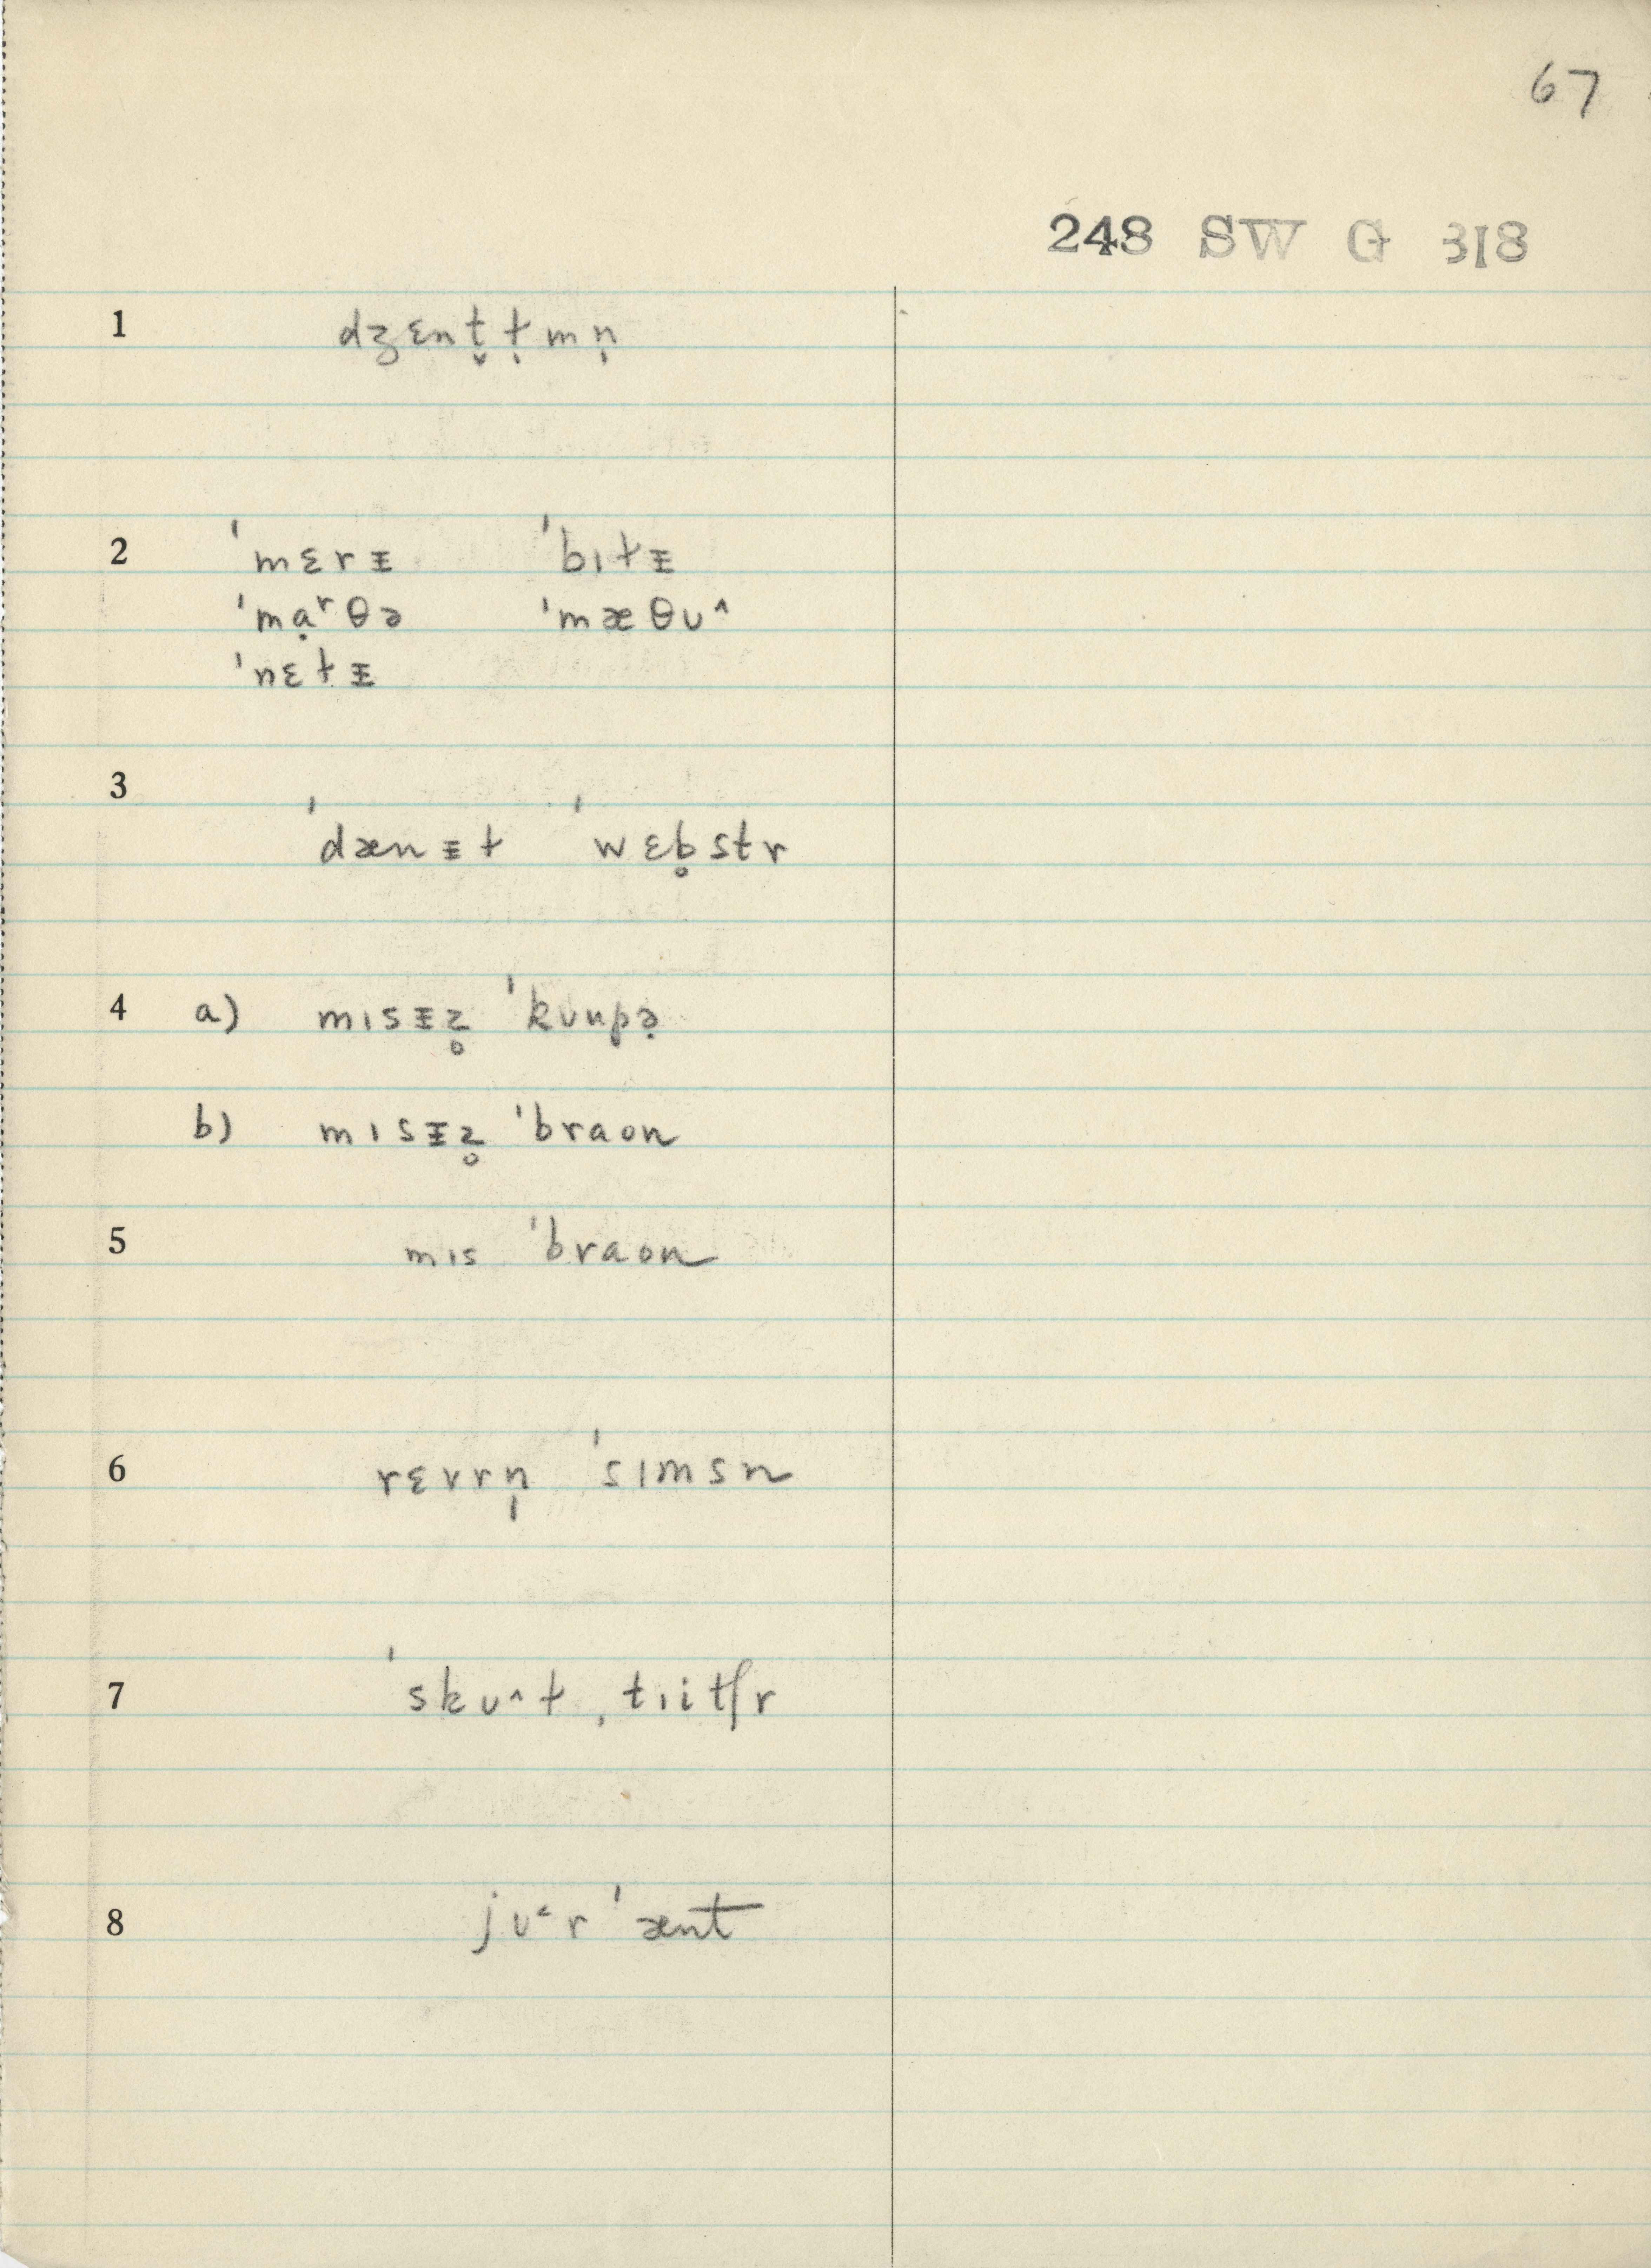 67
248 SW G 318
1 dʒɛnt̬ɫ̩mn̩
2 ˈmɛrᵻ ˈbɪɫᵻ
ˈmɑ̣ʳθə ˈmæθʊ^
ˈnɛɫᵻ
3 ˈdænᵻɫ ˈwɛb̥str
4 a) mɪsᵻz̥ ˈkʊupə̣
b) mɪsᵻz̥ ˈbraon
5 mɪs ˈbraon
6 rɛvrn̩ ˈsɪmsn
7 ˈskʊ^ɫ ˌtɪitʃr
8 jʊ˂r ˈænt